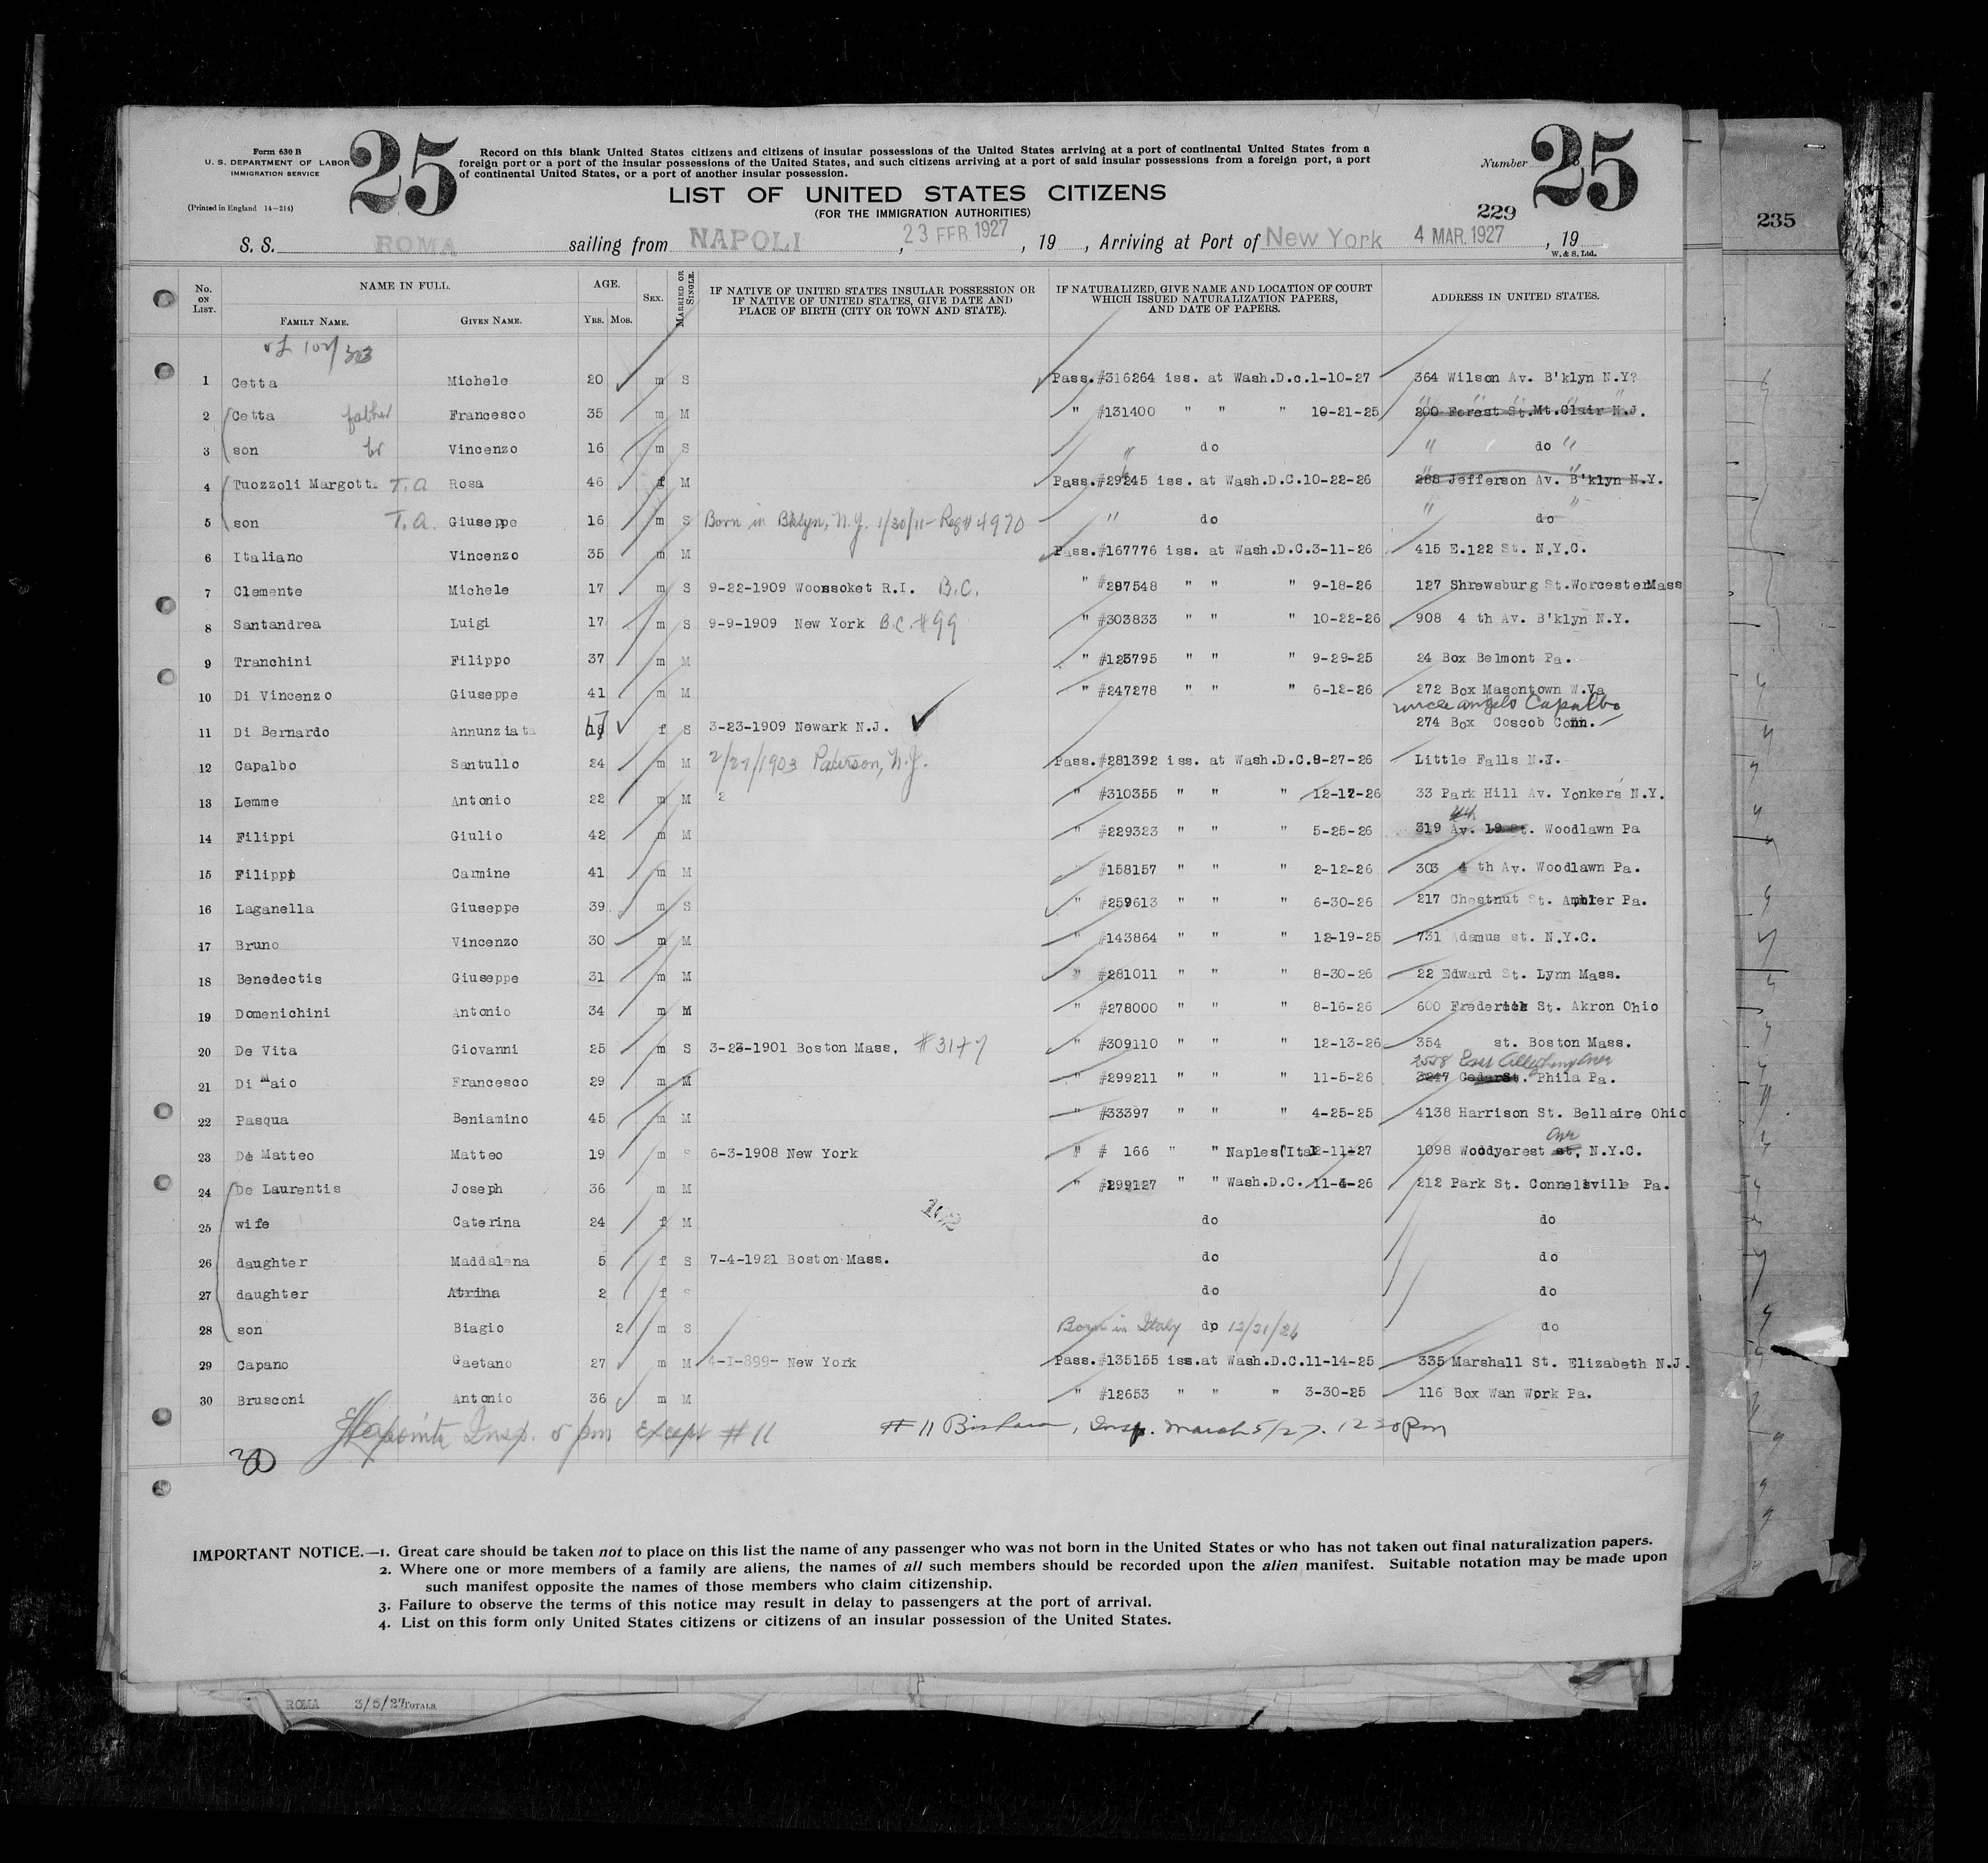 Form 630 B
U. S. DEPARTMENT OF LABOR
IMMIGRATION SERVICE
(Printed in England 14—214)
25
Record on this blank United States citizens and citizens of insular possessions of the United States arriving at a port of continental United States from a
foreign port or a port of the insular possessions of the United States, and such citizens arriving at a port of said insular possessions from a foreign port, a port
of continental United States, or a port of another insular possession.
Number 25
LIST OF UNITED STATES CITIZENS
(FOR THE IMMIGRATION AUTHORITIES)
229
235
S. S. ROMA sailing from NAPOLI, 23 FEB. 1927, 19 , Arriving at Port of New York 4 MAR. 1927, 19
W. & S. Ltd.
No. ON LIST. NAME IN FULL. FAMILY NAME. GIVEN NAME. AGE. Yrs. Mos. SEX. MARRIED OR SINGLE. IF NATIVE OF UNITED STATES INSULAR POSSESSION OR IF NATIVE OF UNITED STATES, GIVE DATE AND PLACE OF BIRTH (CITY OR TOWN AND STATE). IF NATURALIZED, GIVE NAME AND LOCATION OF COURT WHICH ISSUED NATURALIZATION PAPERS, AND DATE OF PAPERS. ADDRESS IN UNITED STATES.
1 Cetta Michele 20 m S Pass.#316264 iss. at Wash.D.c.1-10-27 364 Wilson Av. B'klyn N.Y?
2 Cetta father Francesco 35 m M " #131400 " " " 10-21-25 200 Forest St.Mt.Clair N.J.
3 son br Vincenzo 16 m S " do " do "
4 Tuozzoli Margotta T.A Rosa 46 f M Pass.#29245 iss. at Wash.D.C.10-22-26 288 Jefferson Av. B'klyn N.Y.
5 son T.A. Giuseppe 16 m S Born in Bklyn, N.Y. 1/30/11- Reg# 4970 " do " do "
6 Italiano Vincenzo 35 m M Pass.#167776 iss. at Wash.D.C.3-11-26 415 E.122 St. N.Y.C.
7 Clemente Michele 17 m S 9-22-1909 Woonsoket R.I. B.C. " #287548 " " " 9-18-26 127 Shrewsburg St.WorcesterMass
8 Santandrea Luigi 17 m S 9-9-1909 New York B.C.#99 " #303833 " " " 10-22-26 908 4 th Av. B'klyn N.Y.
9 Tranchini Filippo 37 m M " #123795 " " " 9-29-25 24 Box Belmont Pa.
10 Di Vincenzo Giuseppe 41 m M " #247278 " " " 6-12-26 272 Box Masontown W.Va
uncle angelo Capalbo
11 Di Bernardo Annunziata 17 f S 3-23-1909 Newark N.J. 274 Box Coscob Conn.
12 Capalbo Santullo 24 m M 2/27/1903 Paterson, N.J. Pass.#281392 iss. at Wash.D.C.8-27-26 Little Falls N.Y.
13 Lemme Antonio 22 m M 2 " #310355 " " " 12-17-26 33 Park Hill Av. Yonkers N.Y.
14 Filippi Giulio 42 m M " #229323 " " " 5-25-26 319 4th Av. 19 St. Woodlawn Pa
15 Filippi Carmine 41 m M " #158157 " " " 2-12-26 303 4 th Av. Woodlawn Pa.
16 Laganella Giuseppe 39 m S " #259613 " " " 6-30-26 217 Chestnut St. Ambler Pa.
17 Bruno Vincenzo 30 m M " #143864 " " " 12-19-25 731 Adamus st. N.Y.C.
18 Benedectis Giuseppe 31 m M " #281011 " " " 8-30-26 22 Edward St. Lynn Mass.
19 Domenichini Antonio 34 m M " #278000 " " " 8-16-26 600 Frederick St. Akron Ohio
20 De Vita Giovanni 25 m S 3-23-1901 Boston Mass. #3177 " #309110 " " " 12-13-26 354 st. Boston Mass.
2558 East Allegheny Ave
21 Di Maio Francesco 29 m M " #299211 " " " 11-5-26 3247 CedarSt. Phila Pa.
22 Pasqua Beniamino 45 m M " #33397 " " " 4-25-25 4138 Harrison St. Bellaire Ohio
23 De Matteo Matteo 19 m S 6-3-1908 New York " # 166 " " Naples(Ital 2-11-27 1098 Woodyerest st, Ave N.Y.C.
24 De Laurentis Joseph 36 m M " #299127 " " Wash.D.C. 11-4-26 212 Park St. Connelsville Pa.
25 wife Caterina 24 f M do do
26 daughter Maddalena 5 f S 7-4-1921 Boston Mass. do do
27 daughter Atrina 2 f S do do
28 son Biagio 2 m S Born in Italy do 12/21/26 do
29 Capano Gaetano 27 m M 4-1-899- New York Pass.#135155 iss.at Wash.D.C.11-14-25 335 Marshall St. Elizabeth N.J.
30 Brusconi Antonio 36 m M " #12653 " " " 3-30-25 116 Box Wan Work Pa.
Insp. 5 pm Except #11 #11 Insp. March 5/27. 12 30 pm
30
IMPORTANT NOTICE.—1. Great care should be taken not to place on this list the name of any passenger who was not born in the United States or who has not taken out final naturalization papers.
2. Where one or more members of a family are aliens, the names of all such members should be recorded upon the alien manifest. Suitable notation may be made upon
such manifest opposite the names of those members who claim citizenship.
3. Failure to observe the terms of this notice may result in delay to passengers at the port of arrival.
4. List on this form only United States citizens or citizens of an insular possession of the United States.
ROMA 3/5/27 TOTALS.